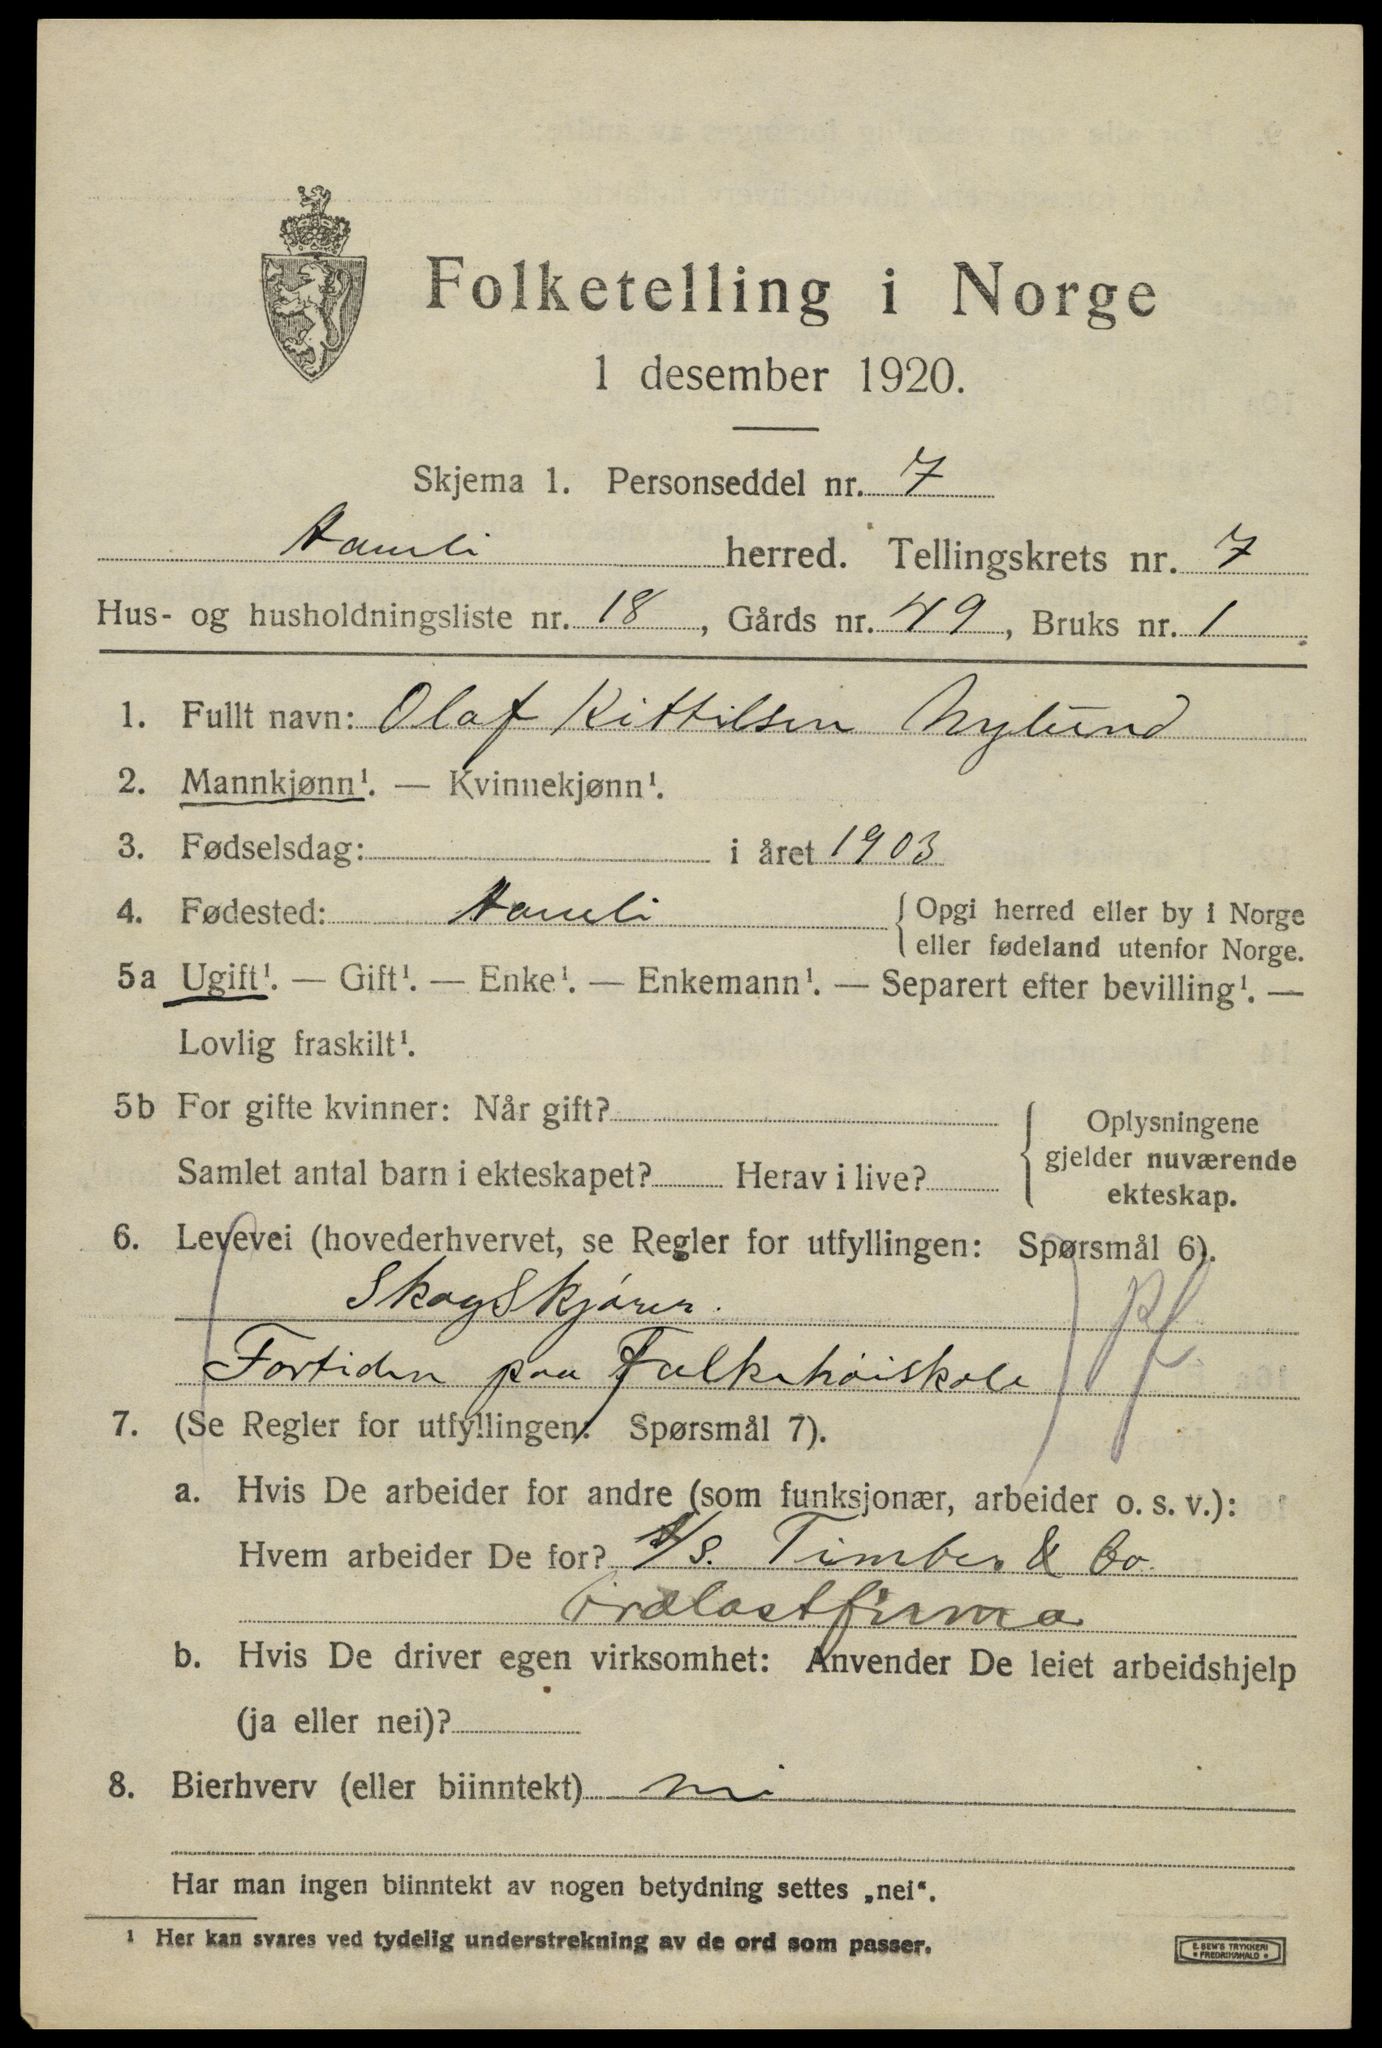 Folketelling i Norge
1 desember 1920.
Skjema 1. Personseddel nr. 7
Aamli herred. Tellingskrets nr. 7
Hus- og husholdningsliste nr. 18, Gårds nr. 49, Bruks nr. 1
1. Fullt navn: Olaf Kittilsen Nylund
2. Mannkjønn¹. — Kvinnekjønn¹.
3. Fødselsdag: i året 1903
4. Fødested: Aamli {Opgi herred eller by i Norge
eller fødeland utenfor Norge.
5a Ugift¹. — Gift¹. — Enke¹. — Enkemann¹. — Separert efter bevilling¹. —
Lovlig fraskilt¹.
5b For gifte kvinner: Når gift?
Samlet antal barn i ekteskapet? Herav i live?
Oplysningene
gjelder nuværende
ekteskap.
6. Levevei (hovederhvervet, se Regler for utfyllingen: Spørsmål 6).
Skogskjører.
Fortiden paa Folkehøiskole
7. (Se Regler for utfyllingen: Spørsmål 7).
a. Hvis De arbeider for andre (som funksjonær, arbeider o. s. v.):
Hvem arbeider De for? A/S. Timber & Co.
Trælastfirma
b. Hvis De driver egen virksomhet: Anvender De leiet arbeidshjelp
(ja eller nei)?
8. Bierhverv (eller biinntekt) nei
Har man ingen biinntekt av nogen betydning settes „nei“.
¹ Her kan svares ved tydelig understrekning av de ord som passer.
E. SEM'S TRYKKERI
• FREDRIKSHALD •